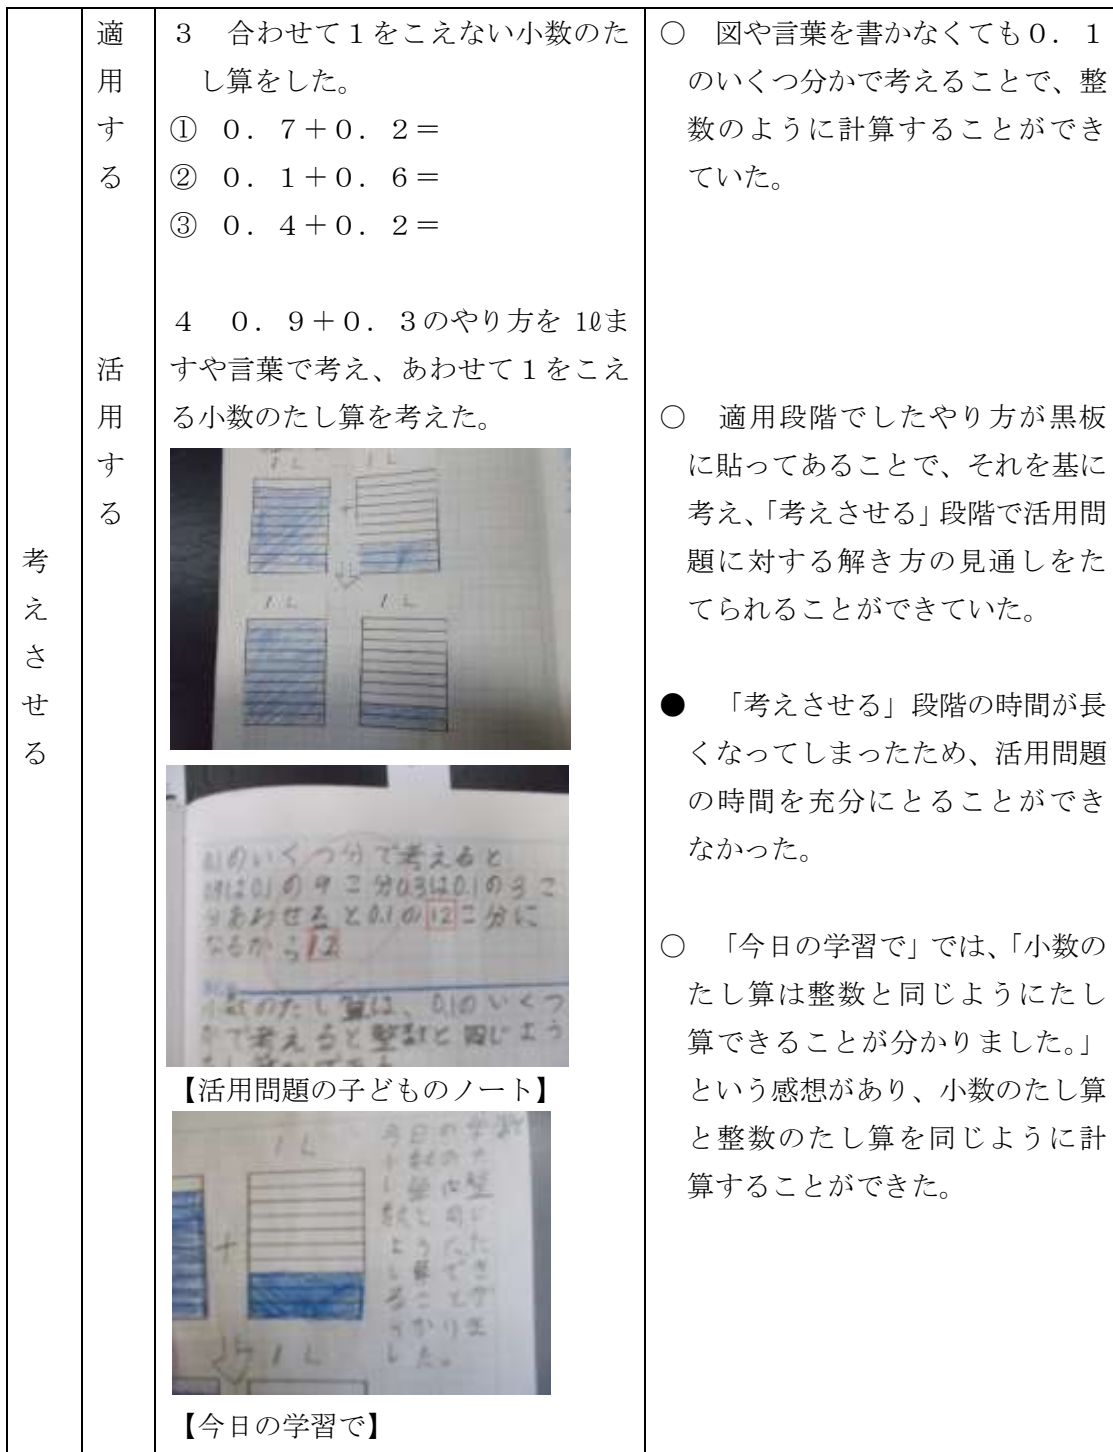 考えさせる
適用する
３　合わせて１をこえない小数のた
し算をした。
①　０．７＋０．２＝
②　０．１＋０．６＝
③　０．４＋０．２＝
○　図や言葉を書かなくても０．１
のいくつ分かで考えることで、整
数のように計算することができ
ていた。
活用する
４　０．９＋０．３のやり方を 1ℓま
すや言葉で考え、あわせて１をこえ
る小数のたし算を考えた。
1L
1L
+
1L
1L
0.1のいくつ分で考えると
0.9は0.1の9こ分0.3は0.1の3こ
分あわせると0.1の12こ分に
なるから12
小数のたし算は、0.1のいくつ
分で考えると整数と同じよう
【活用問題の子どものノート】
1L
+
1L
今日の学習で
【今日の学習で】
○　適用段階でしたやり方が黒板
に貼ってあることで、それを基に
考え、「考えさせる」段階で活用問
題に対する解き方の見通しをた
てられることができていた。
●　「考えさせる」段階の時間が長
くなってしまったため、活用問題
の時間を充分にとることができ
なかった。
○　「今日の学習で」では、「小数の
たし算は整数と同じようにたし
算できることが分かりました。」
という感想があり、小数のたし算
と整数のたし算を同じように計
算することができた。